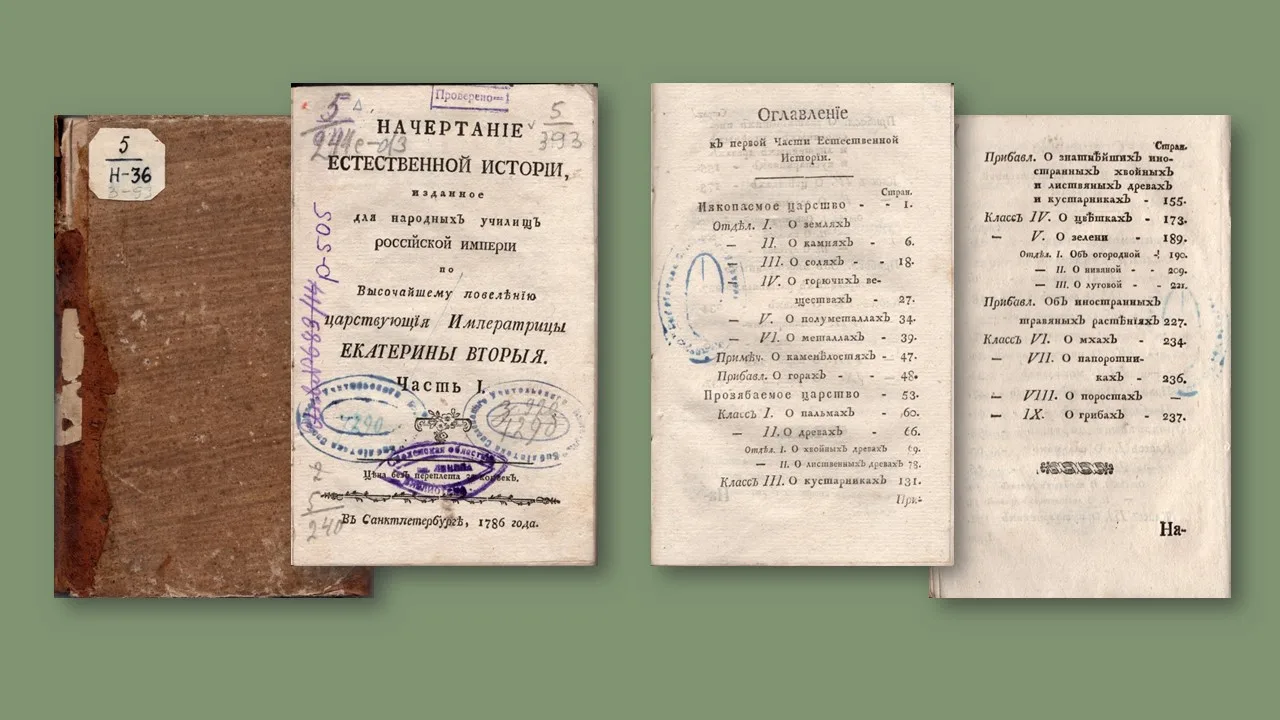 5
Н-36
Проверено—1
5
5
393
НАЧЕРТАНІЕ
ЕСТЕСТВЕННОЙ ИСТОРІИ,
изданное
для народныхъ училищъ
РОССІЙСКОЙ ИМПЕРІИ
по
Высочайшему повелѣнію
царствующія Императрицы
ЕКАТЕРИНЫ ВТОРЫЯ.
Часть I.
4290
4290
Цѣна безъ переплета копѣекъ.
Въ Санктпетербургѣ, 1786 года.
240
Оглавленіе
къ первой Части Естественной
Исторіи.
Стран.
Ископаемое царство - - 1.
Отдѣл. I. О земляхъ
— II. О камняхъ - 6.
III. О соляхъ - - 18.
IV. О горючихъ ве-
ществахъ - 27.
— V. О полуметаллахъ 34.
— VI. О металлахъ - 39.
Примѣч. О каменѣлостяхъ - 47.
Прибавл. О горахъ - - 48.
Прозябаемое царство - 53.
Классъ I. О пальмахъ - 60.
— II. О древахъ - 66.
Отдѣл. I. О хвойныхъ древахъ 69.
— II. О лиственныхъ древахъ 78.
Классъ III. О кустарникахъ 131.
При-
Стран.
Прибавл. О знатнѣйшихъ ино-
странныхъ хвойныхъ
и листвяныхъ древахъ
и кустарникахъ - 155.
Классъ IV. О цвѣткахъ - 173.
— V. О зелени - 189.
Отдѣл. I. Объ огородной - 190.
— II. О нивяной - - 209.
— III. О луговой - - 221.
Прибавл. Объ иностранныхъ
травяныхъ растѣніяхъ 227.
Классъ VI. О мхахъ - 234.
— VII. О папоротни-
кахъ - 236.
— VIII. О поростахъ —
— IX. О грибахъ - 237.
На-